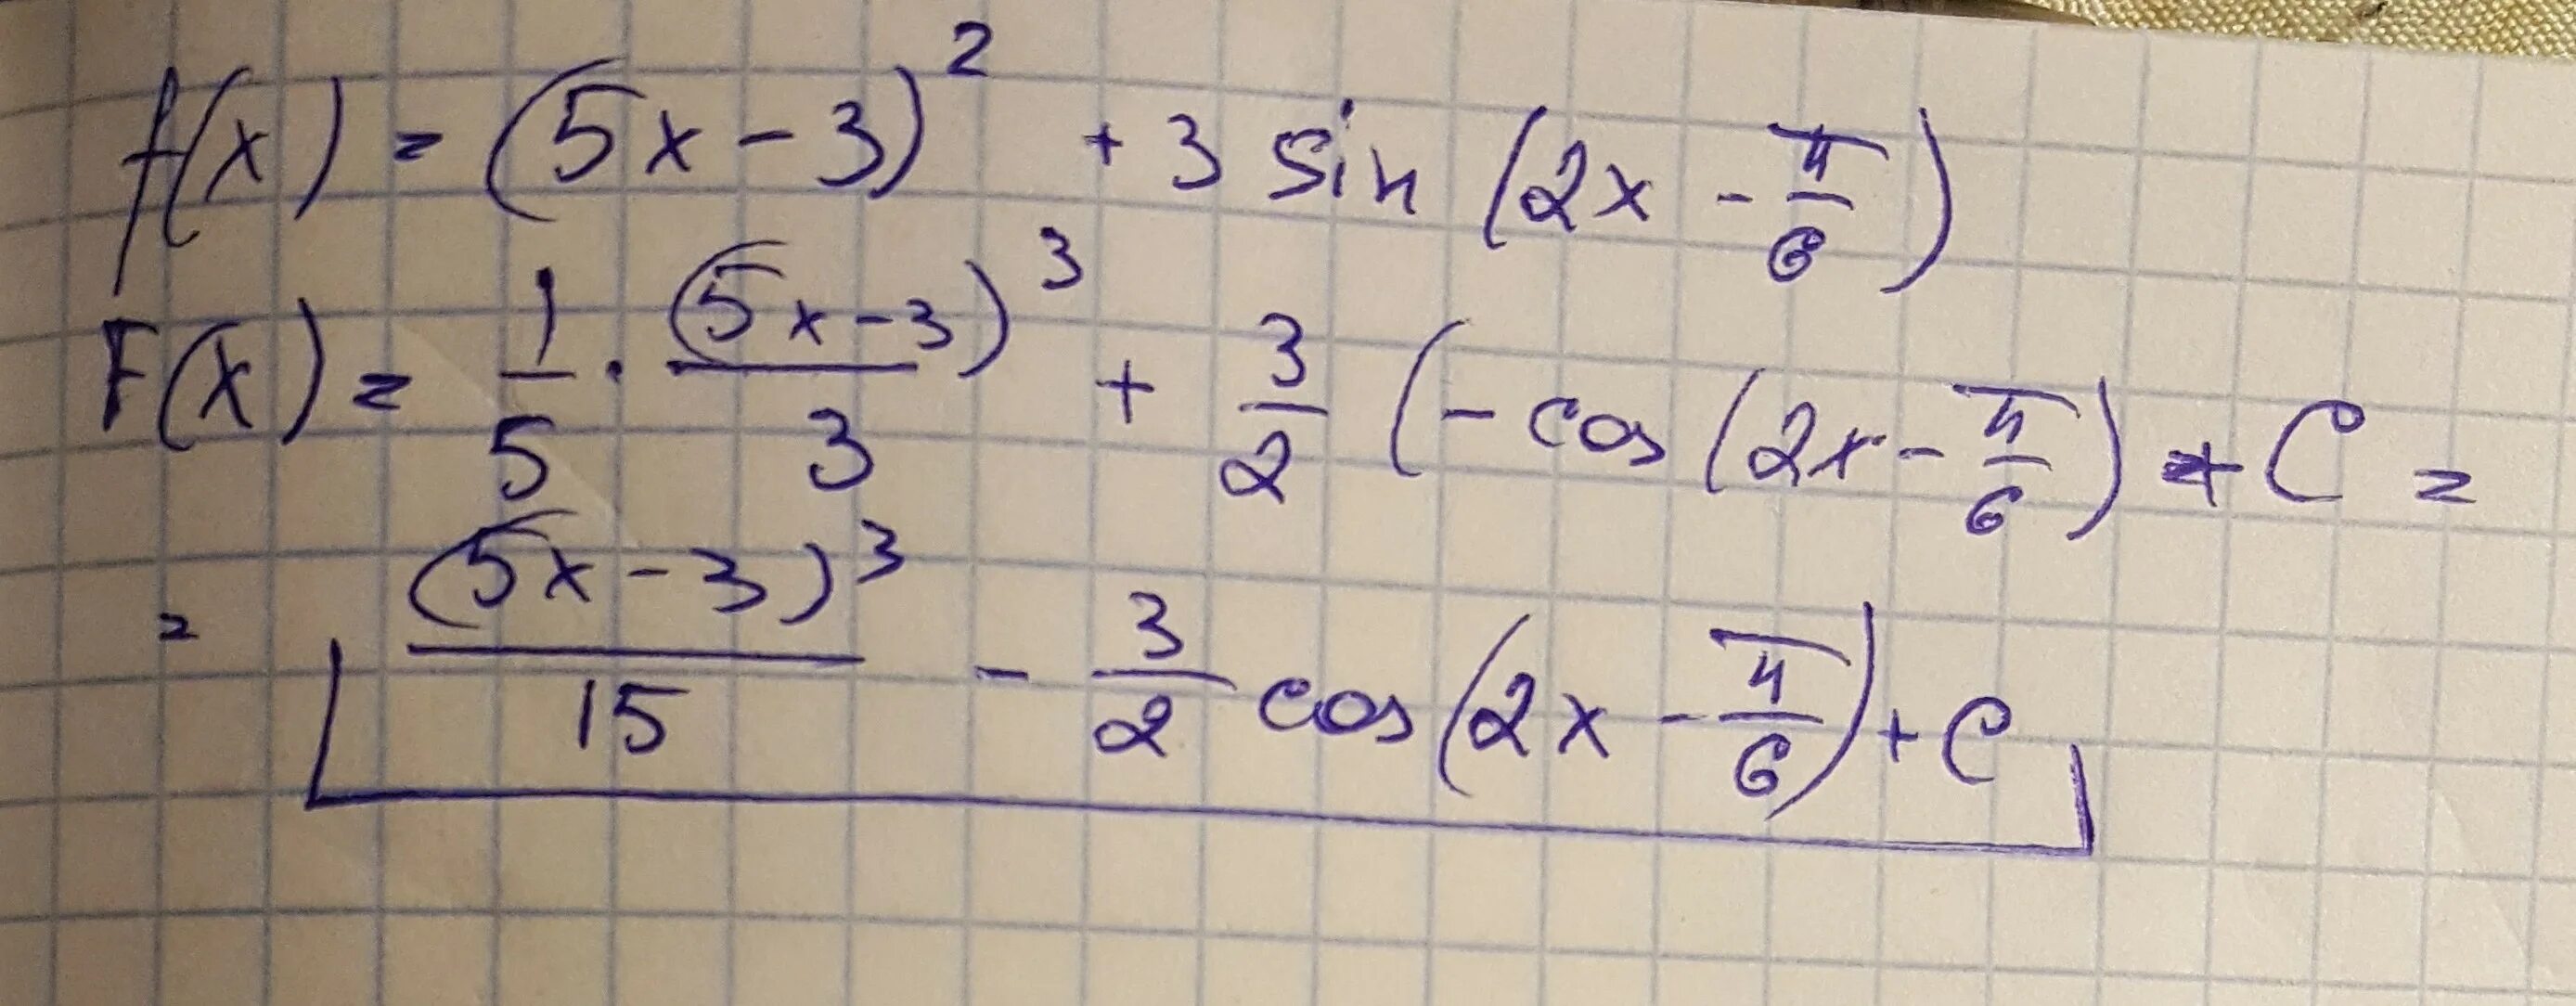 f(x) = (5x - 3)² + 3 sin (2x - π/6)
F(x) = 1/5 · (5x - 3)³/3 + 3/2 (- cos (2x - π/6) + C =
= (5x - 3)³/15 - 3/2 cos (2x - π/6) + C